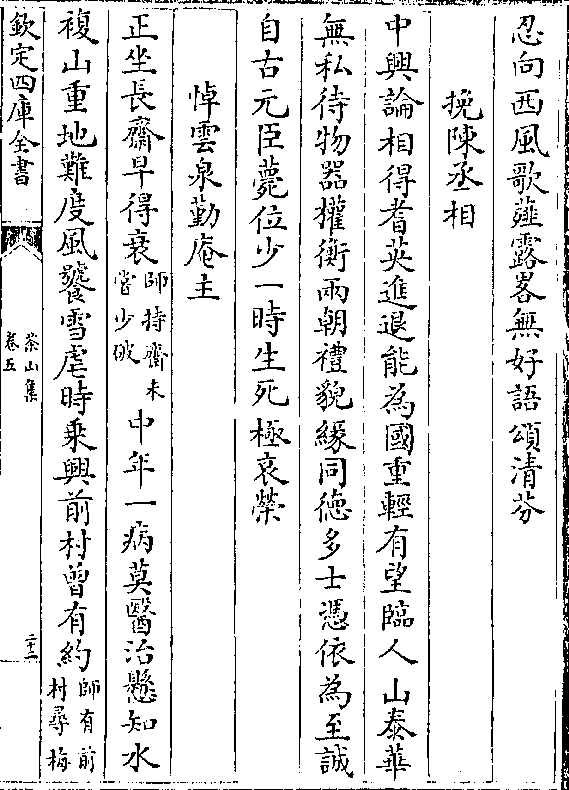 忍向西風歌薤露畧無好語頌清芬
挽陳丞相
中興論相得耆英進退能為國重輕有望臨人山泰華
無私待物器權衡兩朝禮貌緣同德多士憑依為至誠
自古元臣薨位少一時生死極哀榮
悼雲泉勤庵主
正坐長齋早得衰師持齋未嘗少破中年一病莫醫治懸知水
複山重地難度風饕雪虐時乘興前村曾有約師有前村尋梅
欽定四庫全書
茶山集
卷五
二十一